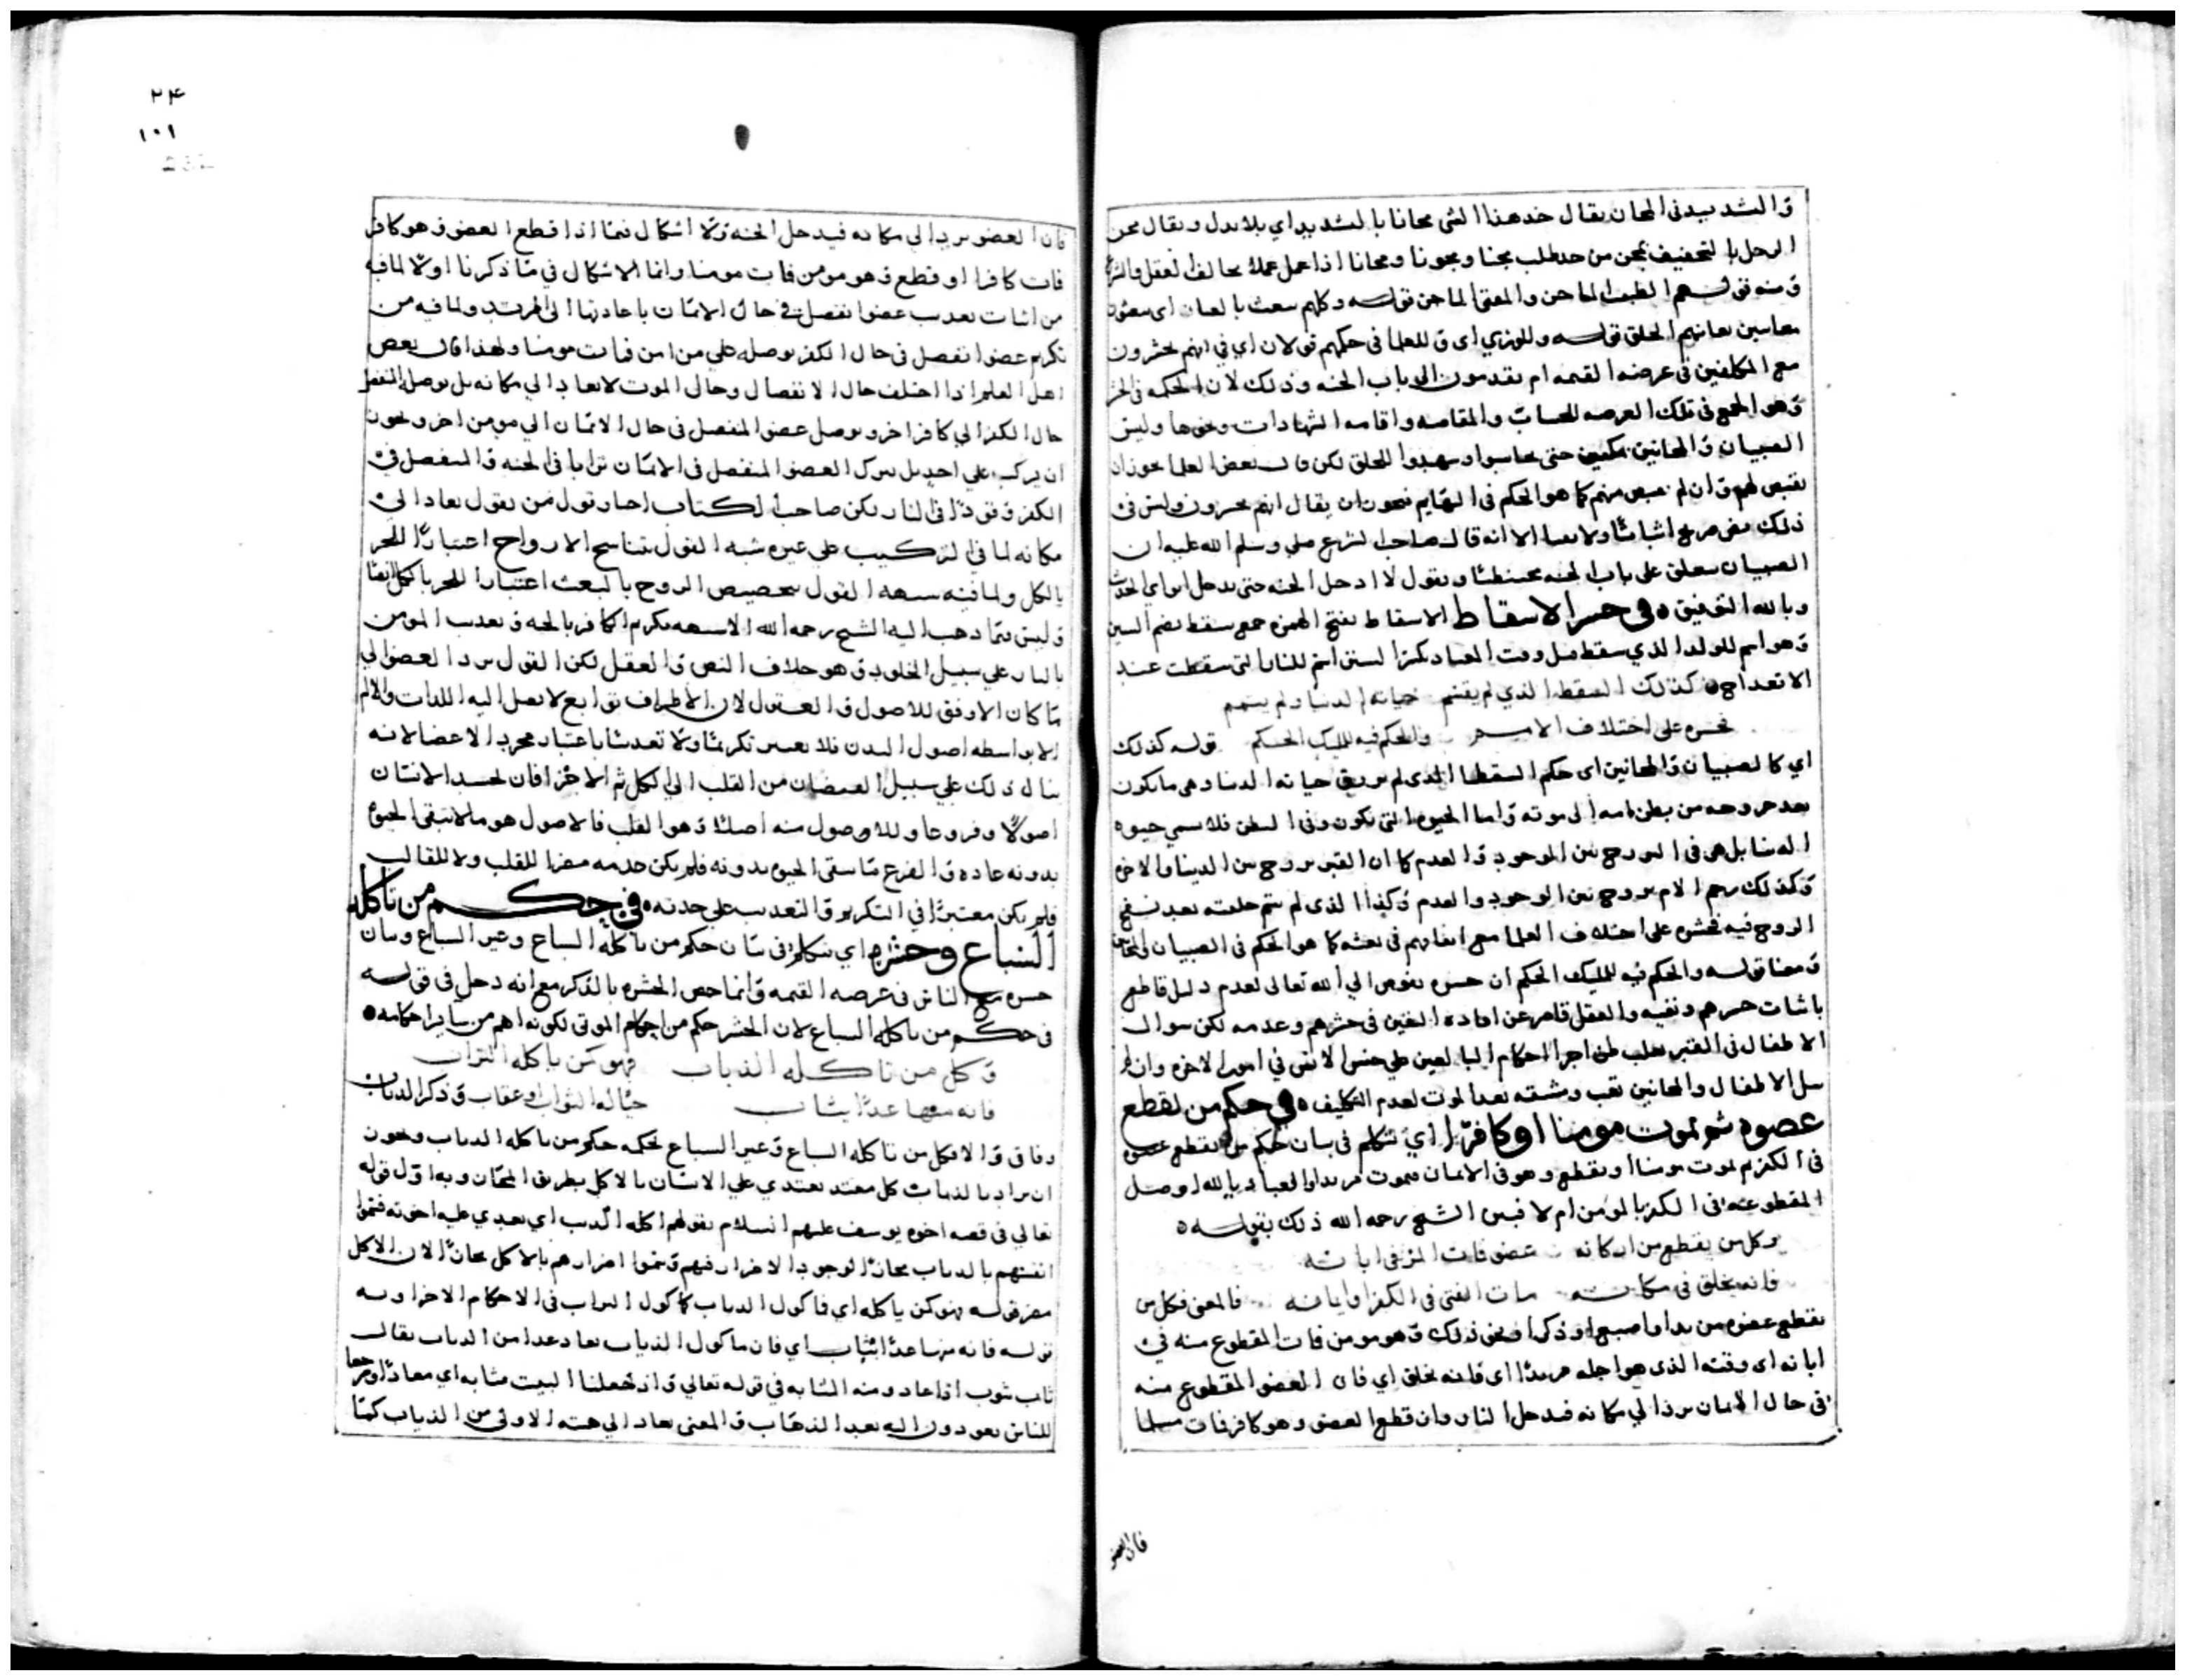 والتشديد في المجان يقال خذ هذا الشي مجانا بالتشديد اي بلا بدل ويقال مجن
الرجل بالتخفيف يمجن من حد طلب مجنا ومجونا ومجانا اذا عمل عملا يخالف العقل والشرع
ومنه قولهم الطبيب الماجن والمفتي الماجن قوله وكلهم يبعث بالعيان اي يبعثون
معاينين يعاينهم الخلق قوله اي وللعلما في حكمهم قولان اي في انهم يحشرون
مع المكلفين في عرصة القيمه ام يقدمون الى باب الجنه وذلك لان الحكمه في الحشر
وهو الجمع في تلك العرصه للحساب والمقاصه واقامه الشهادات ونحوها وليس
الصبيان والمجانين مكلفين حتى يحاسبوا او يشهدوا للخلق لكن قال بعض العلما يجوز ان
يقتص لهم وان لم يقتص منهم كما هو الحكم في البهايم فيجوز ان يقال انهم يحشرون وليس في
ذلك نص صريح اثباتا ولا نفيا الا انه قال صاحب الشرع صلى وسلم الله عليه ان
الصبيان يتعلق على باب الجنه محبنطئا ويقول لا ادخل الجنه حتى يدخل ابواي الحديث
وبالله التوفيق في حشر الاسقاط الاسقاط بفتح الهمزه جمع سقط بضم السين
وهو اسم للولد الذي سقط قبل وقت الميعاد بكسر السين اسم للنار التي سقطت عند
الانقداح كذلك السقط الذي لم يقسم حياته الدنيا ولم يتمم
نحشره على اختلاف الامم والحكم فيه للمليك الحكم قوله كذلك
اي كالصبيان والمجانين اي حكم السقط الذي لم يرزق حياته الدنيا وهي ما يكون
بعد خروجه من بطن امه الى موته واما الحيوه التي يكون في البطن فلا تسمى حيوه
الدنيا بل هي في البرزخ بين الموجود والعدم كما ان القبر برزخ بين الدنيا والاخره
وكذلك رحم الام برزخ بين الوجود والعدم وكذا الذي لم يتم خلقته بعد نفخ
الروح فيه فحشره على اختلاف العلما مع اتفاقهم في بعثه كما هو الحكم في الصبيان والمجانين
ومعنا قوله والحكم فيه للمليك الحكم ان حشره يفوض الي الله تعالى لعدم دليل قاطع
باثبات حشرهم ونفيه والعقل قاصر عن افادة اليقين في حشرهم وعدمه لكن سوال
الاطفال في القبر يغلب ظن اجرا احكام البالغين على جنس الانس في امور الاخره وان لم
الاطفال والمجانين تعب ومشقه بعد الموت لعدم التكليف في حكم من يقطع
عضوه ثم يموت مومنا او كافرا اي نتكلم في بيان حكم من يقطع عضوه
في الكفر ثم يموت مومنا او يقطع وهو في الايمان فيموت مرتدا والعياذ بالله او يصل
المقطوع عنه في الكفر بالمومن ام لا فبين الشيخ رحمه الله ذلك بقوله
وكل من يقطع من اركانه عضو فمات المرء في ابانه
فانه يخلق في مكانه مات الفتى في الكفر او ايمانه فالمعنى فكل من
يقطع عضوه من يد او اصبع او ذكر او نحو ذلك وهو مومن فمات المقطوع منه في
ابانه اي وقته الذي هو اجله مرتدا اي فانه يخلق اي فان العضو المقطوع منه
في حال الايمان يرد الي مكانه فيدخل النار وان قطع العضو وهو كافر فمات مسلما
فان العضو
٢٤
١٠١
فان العضو يرد الي مكانه فيدخل الجنه ولا اشكال فيما اذا قطع العضو وهو كافر
فمات كافرا او قطع وهو مومن فمات مومنا وانما الاشكال في ما ذكرنا اولا لما فيه
من اثبات تعذيب عضو انفصل في حال الايمان باعادتها الى المرتد ولما فيه من
تكريم عضو انفصل في حال الكفر بوصله على من امن فمات مومنا ولهذا قال بعض
اهل العلم اذا اختلف حال الانفصال وحال الموت لا يعاد الي مكانه بل يوصل المنفصل
حال الكفر الي كافر اخر ويوصل عضو المنفصل في حال الايمان الي مومن اخر ويجوز
ان يركب على احد بل يترك العضو المنفصل في الايمان ترابا في الجنه والمنفصل في
الكفر وقودا في النار لكن صاحب الكتاب اختار قول من يقول يعاد الى
مكانه لما في التركيب على غيره شبه القول بتناسخ الارواح اعتبارا للجزء
بالكل ولما فيه شبهه القول بتخصيص الروح بالبعث اعتبارا للجزء بالكل ايضا
وليس فيما ذهب اليه الشيخ رحمه الله الا شبهه تكريم الكافر بالجنه وتعذيب المومن
بالنار على سبيل الخلود وهو خلاف النص والعقل لكن القول برد العضو الي
ما كان الاوفق للاصول والعقول لان الاطراف توابع لا يصل اليه اللذات والالام
الا بواسطه اصول البدن فلا يعتبر تكريما ولا تعذيبا باعتبار مجرد الاعضا لانه
ينال ذلك على سبيل الفيضان من القلب الي الكل ثم الاجزا فان لجسد الانسان
اصولا وفروعا وللاصول منه اصلا وهو القلب فالاصول هو ما لا تبقى الحيوه
بدونه عاده والفرع ما يبقى الحيوه بدونه فلم يكن خدمه مضرا للقلب ولا للقالب
فلم يكن معتبرا في التكريم والتعذيب على حدته في حكم من تاكله
السباع وحشره اي نتكلم في بيان حكم من تاكله السباع وغير السباع وبيان
حشره مع الناس في عرصه القيمه وانما خص الحشره بالذكر مع انه دخل في قوله
في حكم من تاكله السباع لان الحشر حكم من احكام الموتى لكونه اهم من ساير احكامه
وكل من تاكله الذياب فهو كمن ياكله التراب
فانه منها غدا يثاب حياله الثواب وعقاب وذكر الذياب
وفاق والا فكل من تاكله السباع وغير السباع فحكمه حكم من تاكله الذياب ويجوز
ان يراد بالذياب كل معتد يعتدي على الانسان بالاكل بطريق المجاز وبه اول قوله
تعالي في قصه اخوه يوسف عليهم السلام بقولهم اكله الذيب اي يعتدي عليه اخوته فسموا
انفسهم بالذياب مجازا لوجود الاضرار فيهم وسموا اضرارهم بالاكل مجازا لان الاكل
مضر قوله فهو كمن ياكله اي فاكول الذياب كاكول التراب في الاحكام الاخراويه
قوله فانه منها غدا يثاب اي فان ماكول الذياب يعاد غدا من الذياب يقال
ثاب يثوب اذا عاد ومنه المثابه في قوله تعالي واذ جعلنا البيت مثابه اي معادا ومرجعا
للناس يعودون اليه بعد الذهاب والمعنى يعاد الي هيئته الاولى من الذياب كما